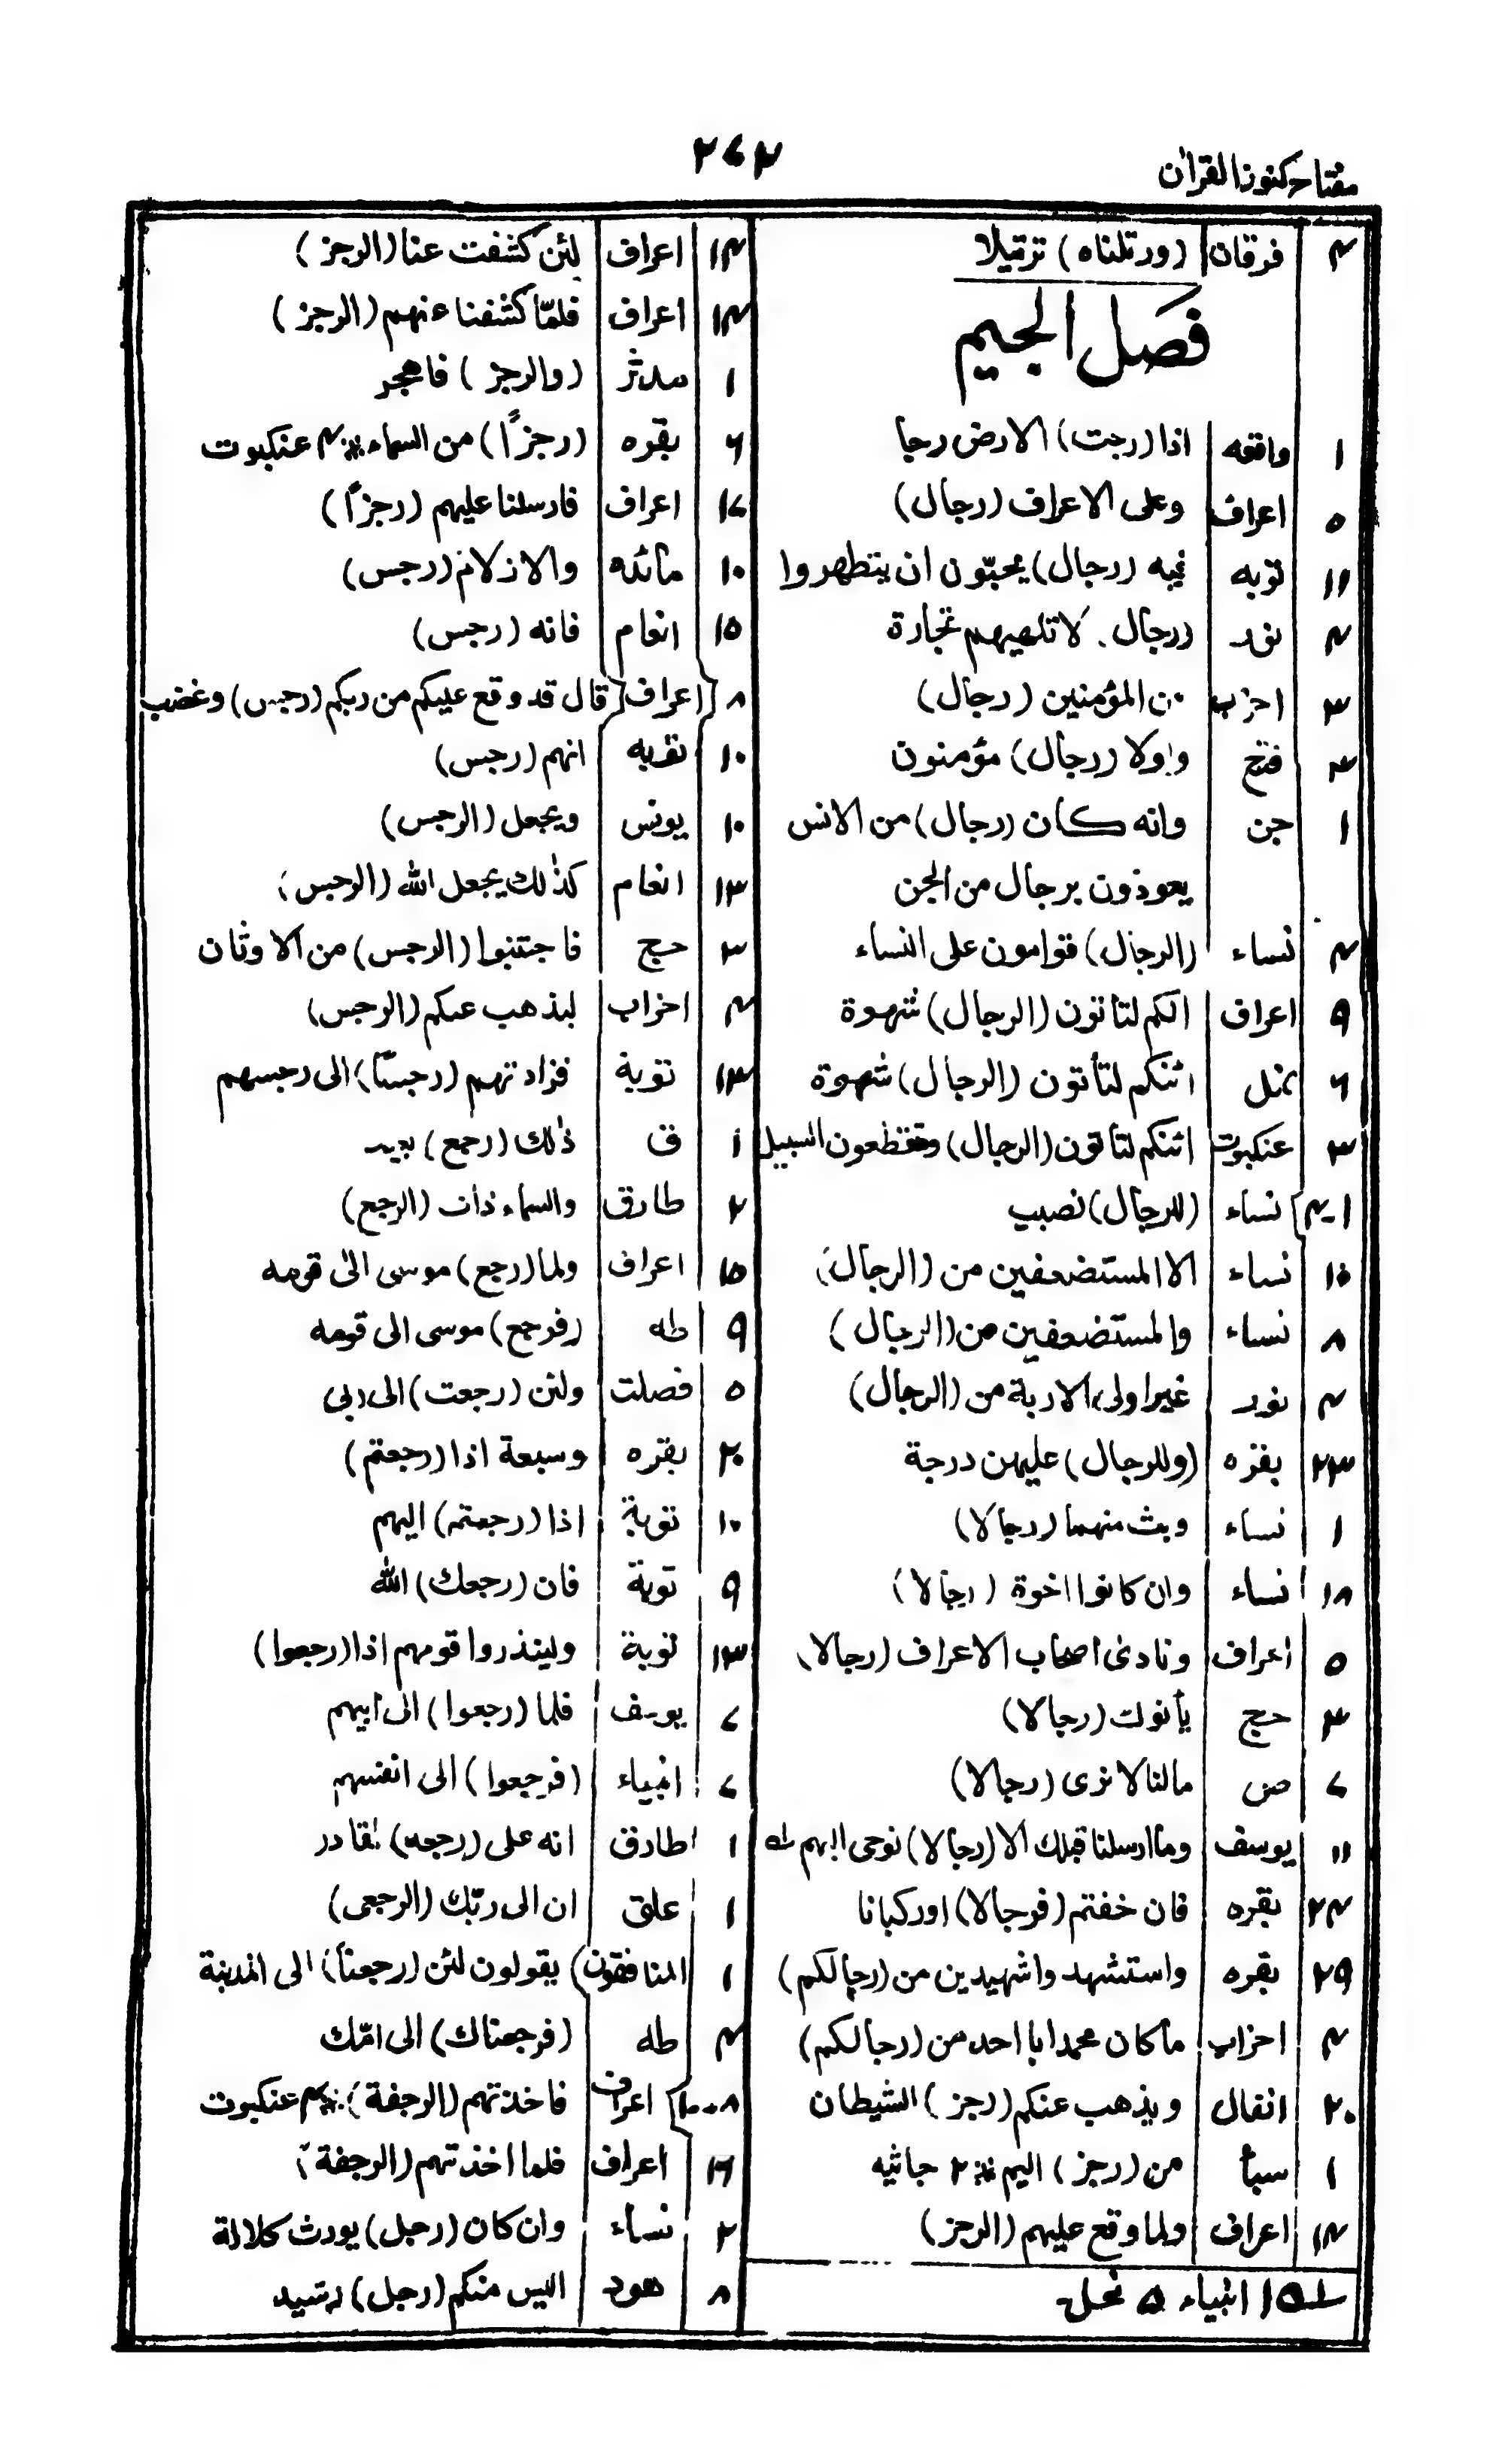 مفتاح كنوز القرآن
۲۷۲
۴ فرقان (ورتلناه) ترتيلا
فصل الجيم
۱ واقعه اذا (رجت) الارض رجا
۵ اعراف وعلى الاعراف (رجال)
۱۱ توبه فيه (رجال) يحبّون ان يتطهروا
۴ نور (رجال. لا تلهيهم تجارة
۳ احزاب من المؤمنين (رجال)
۳ فتح ولولا (رجال) مؤمنون
۱ جن وانه كان (رجال) من الانس
يعوذون برجال من الجن
۴ نساء (الرجال) قوامون على النساء
۹ اعراف انكم لتاتون (الرجال) شهوة
۶ نمل ائنكم لتأتون (الرجال) شهوة
۳ عنكبوت ائنكم لتأتون (الرجال) وتقطعون السبيل
۱-۴ نساء (للرجال) نصيب
۱۰ نساء الا المستضعفين من (الرجال)
۸ نساء والمستضعفين من (الرجال)
۴ نور غير اولى الاربة من (الرجال)
۲۳ بقره (وللرجال) عليهن درجة
۱ نساء وبث منهما (رجالا)
۱۸ نساء وان كانوا اخوة (رجالا)
۵ اعراف ونادى اصحاب الاعراف (رجالا)
۳ حج يأتوك (رجالا)
۷ ص مالنا لا نرى (رجالا)
۱۱ يوسف وما ارسلنا قبلك الا (رجالا) نوحى اليهم له
۲۴ بقره فان خفتم (فرجالا) او ركبانا
۲۹ بقره واستشهدوا شهيدين من (رجالكم)
۴ احزاب ما كان محمد ابا احد من (رجالكم)
۲۰ انفال ويذهب عنكم (رجز) الشيطان
۱ سبأ من (رجز) اليم ۲ جاثيه
۱۴ اعراف ولما وقع عليهم (الرجز)
له ۱ انبياء ۵ نحل
۱۴ اعراف لئن كشفت عنا (الرجز)
۱۴ اعراف فلمّا كشفنا عنهم (الرجز)
۱ مدثر (والرجز) فاهجر
۶ بقره (رجزًا) من السماء ۴ عنكبوت
۱۷ اعراف فارسلنا عليهم (رجزًا)
۱۰ مائده والازلام (رجس)
۱۵ انعام فانه (رجس)
۸ اعراف قال قد وقع عليكم من ربكم (رجس) وغضب
۱۰ توبه انهم (رجس)
۱۰ يونس ويجعل (الرجس)
۱۳ انعام كذٰلك يجعل الله (الرجس)
۳ حج فاجتنبوا (الرجس) من الاوثان
۴ احزاب ليذهب عنكم (الرجس)
۱۳ توبة فزادتهم (رجسًا) الى رجسهم
۱ ق ذٰلك (رجع) بعيد
۲ طارق والسماء ذات (الرجع)
۱۵ اعراف ولما (رجع) موسى الى قومه
۹ طه (فرجع) موسى الى قومه
۵ فصلت ولئن (رجعت) الى ربى
۲۰ بقره وسبعة اذا (رجعتم)
۱۰ توبة اذا (رجعتم) اليهم
۹ توبة فان (رجعك) الله
۱۳ توبة ولينذروا قومهم اذا (رجعوا)
۷ يوسف فلما (رجعوا) الى ابيهم
۷ انبياء (فرجعوا) الى انفسهم
۱ طارق انه على (رجعه) لقادر
۱ علق ان الى ربّك (الرجعى)
۱ المنافقون) يقولون لئن (رجعنا) الى المدينة
۴ طه (فرجعناك) الى امّك
۸-۱۰ اعراف فاخذتهم (الرجفة) ۴ عنكبوت
۱۶ اعراف فلما اخذتهم (الرجفة)
۲ نساء وان كان (رجل) يورث كلالة
۸ هود اليس منكم (رجل) رشيد